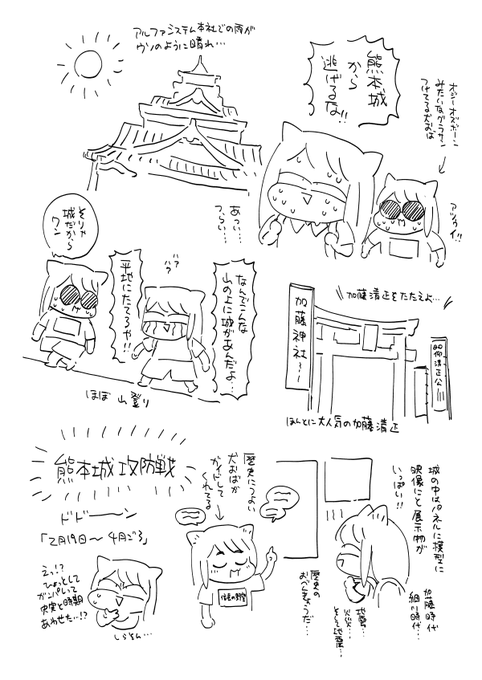 アルファシステム本社での雨が
ウソのように晴れ…
熊本城
から
逃げるな!!
オジーオズボーン
みたいなグラサン
つけてる犬おば
アツゥイ!!
あっ…
つぅい…
そりゃ
城だから
ワン
ハァ
ハァ
なんでこんな
山の上に城があんだよ…
平地にたてろや!!
ほぼ山登り
加藤清正をたたえよ…
加藤神社
清正公
ほんとに大人気の加藤清正
熊本城攻防戦
ドドーーン
「2月19日〜4月ごろ」
えっ!?
ひょっとして
ガンパレって
史実と時期
あわせた…!?
しらとん…
歴史につよい
犬おばが
ガイドして
くれてる
歴史の
おべんきょうだ…
城の中はパネルに模型に
映像にと展示物が
いっぱい!!
加藤時代
細川時代…
地震…
火災…
そして地震…